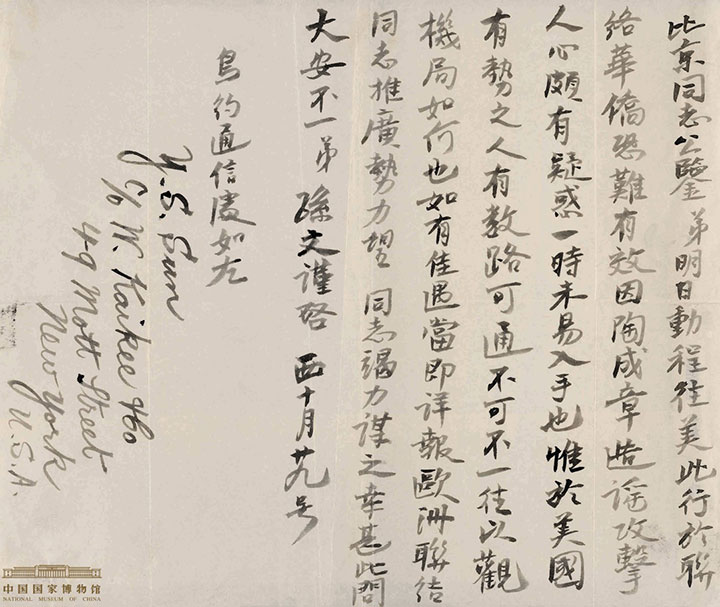 比京同志公鑒 弟明日動程往美此行於聯
絡華僑恐難有效因陶成章造謡攻擊
人心頗有疑惑一時未易入手也惟於美國
有勢之人有数路可通不可不一往以觀
機局如何也如有佳遇當即详報歐洲聯结
同志推廣勢力望 同志竭力谋之幸甚此問
大安不一弟 孫文謹啓 西十月廿九号
鳥约通信處如左
Y. S. Sun
c/o W. Kaikee
49 Mott Street
New York
U.S.A.
中国国家博物馆
NATIONAL MUSEUM OF CHINA